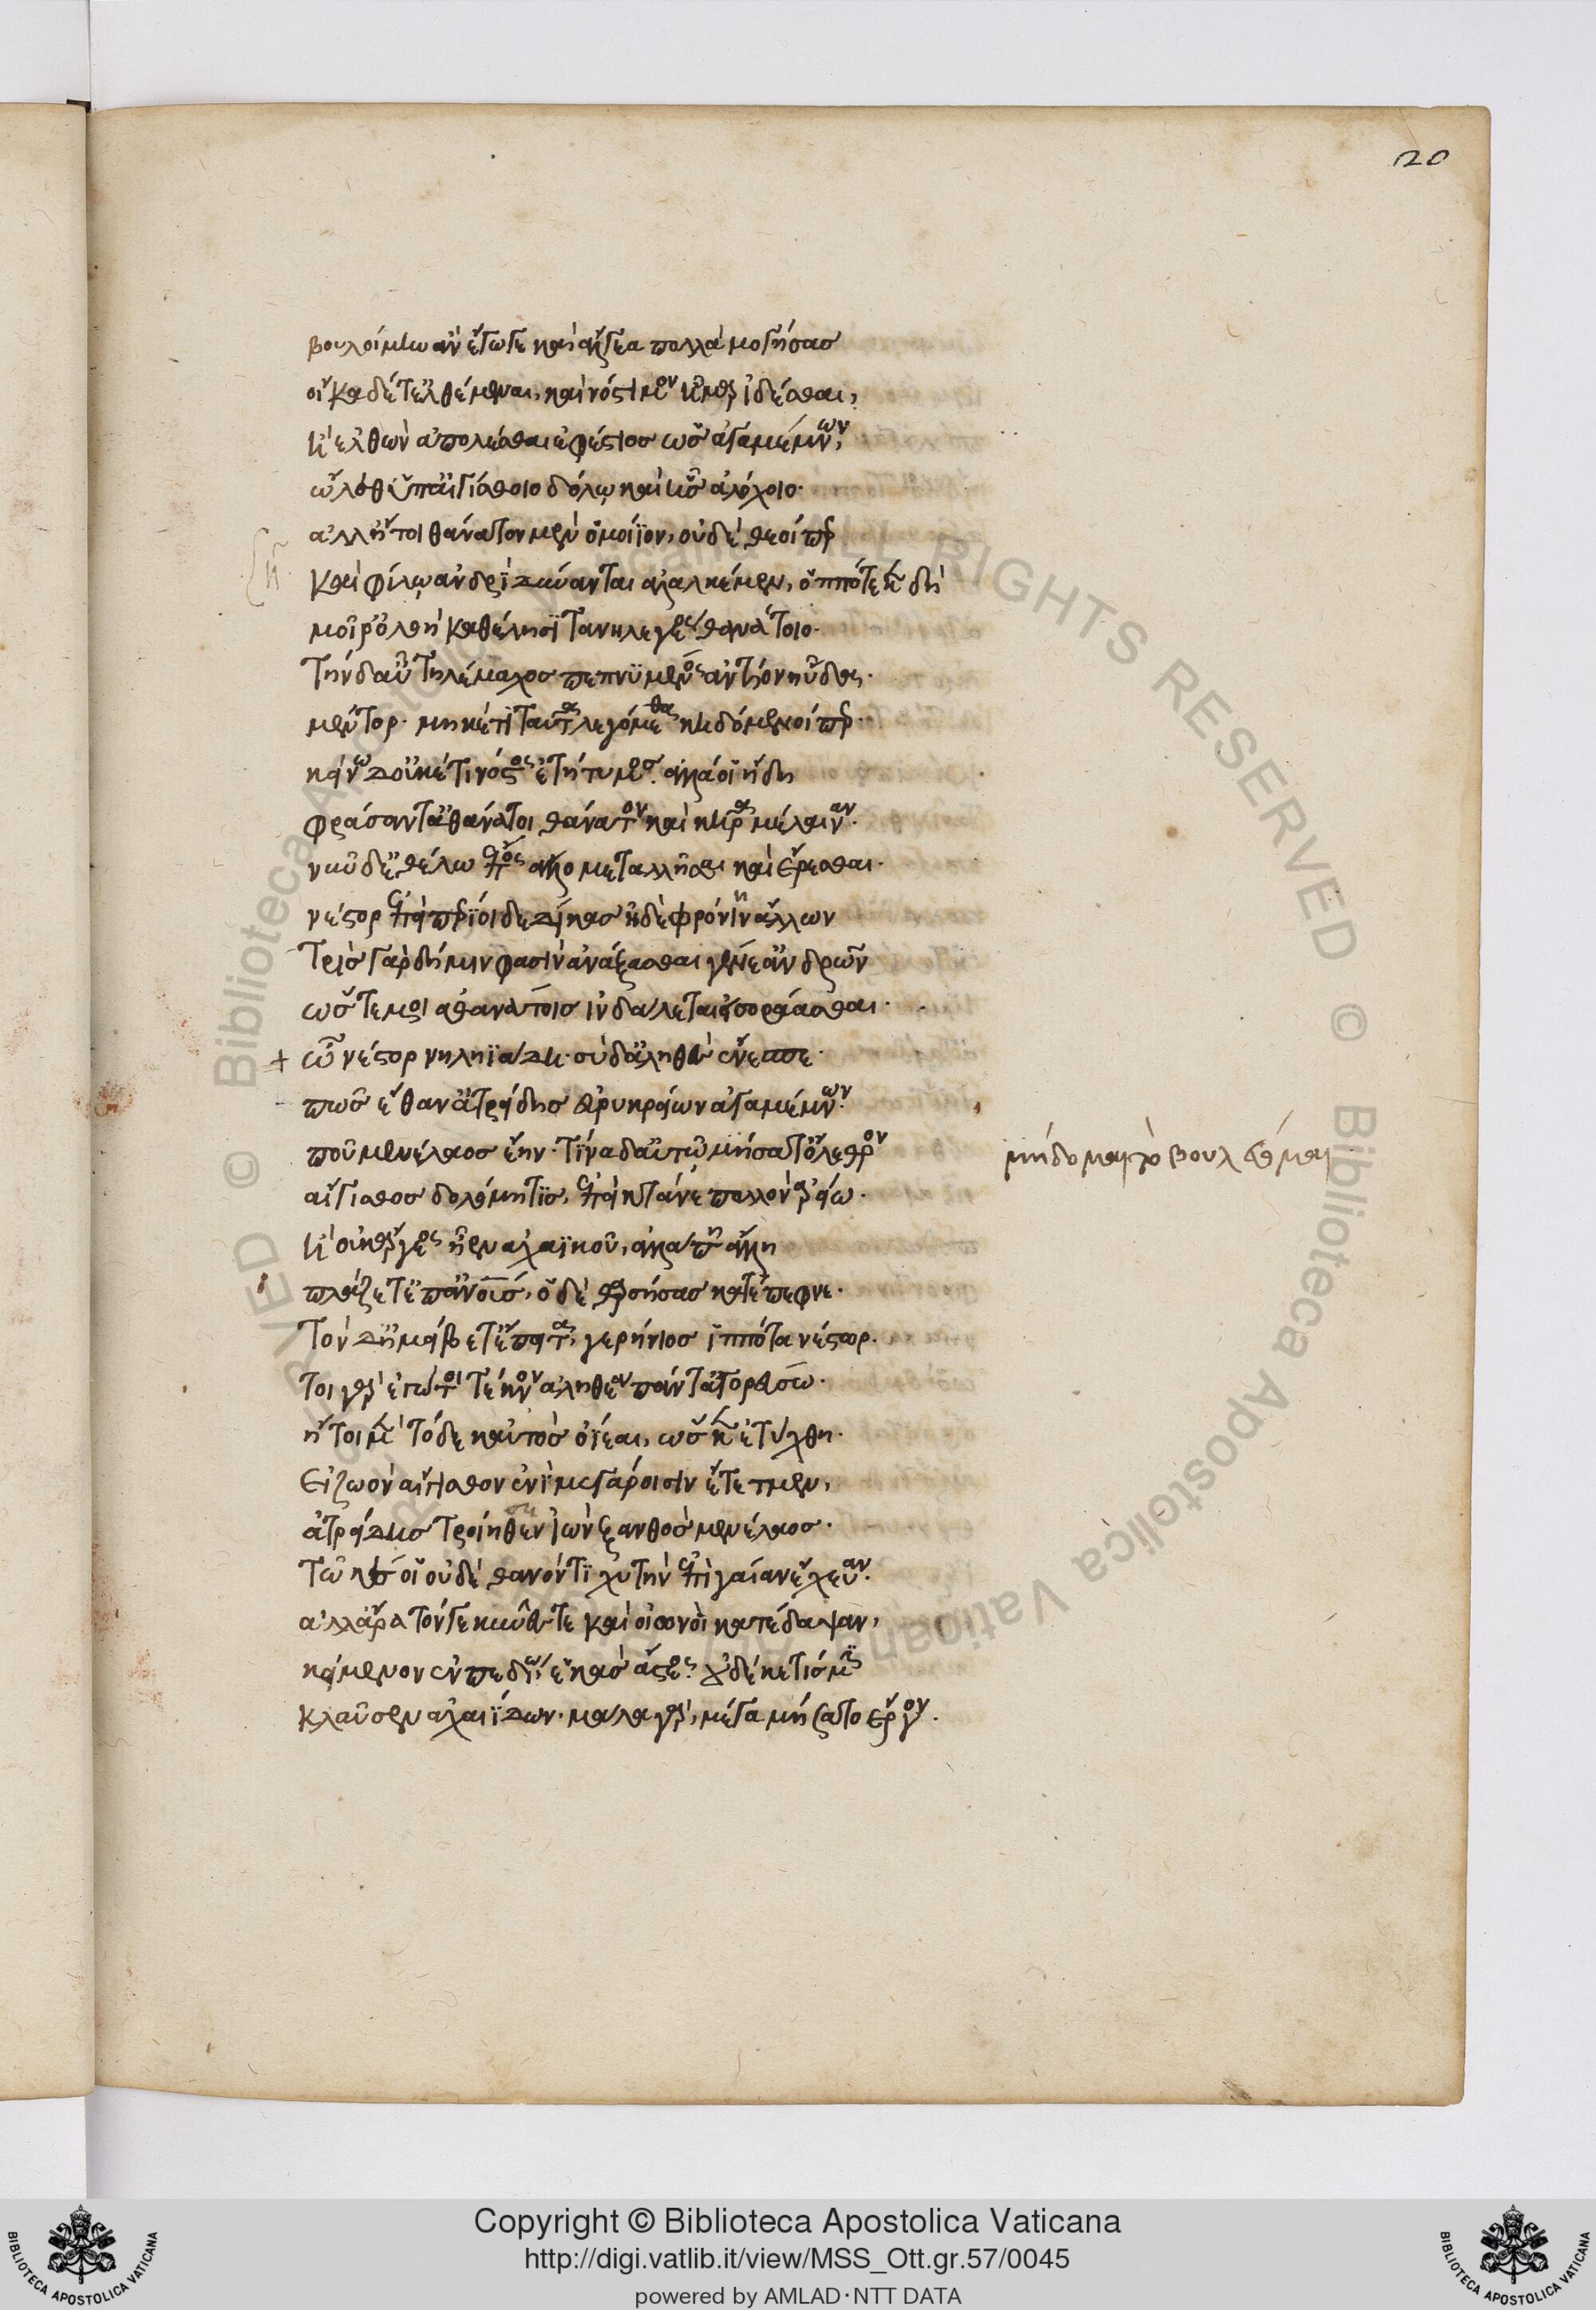 20
βουλοίμην ἂν ἔγωγε καὶ ἄλγεα πολλὰ μογήσας
οἴκαδέ τ' ἐλθέμεναι, καὶ νόστιμον ἦμαρ ἰδέσθαι,
ἢ ἐλθὼν ἀπολέσθαι ἐφέστιος ὡς ἀγαμέμνων,
ὤλεθ' ὑπ' αἰγίσθοιο δόλῳ καὶ ἧς ἀλόχοιο.
ἀλλ' ἤτοι θάνατον μὲν ὁμοίϊον, οὐδὲ θεοί περ
καὶ φίλῳ ἀνδρὶ δύνανται ἀλαλκέμεν, ὁππότε κεν δὴ
μοῖρ' ὀλοὴ καθέλησι τανηλεγέος θανάτοιο.
Τὴν δ' αὖ τηλέμαχος πεπνυμένος ἀντίον ηὔδα.
μέντορ. μηκέτι ταῦτα λεγώμεθα κηδόμενοί περ.
κείνῳ δ' οὐκέτι νόστος ἐτήτυμος. ἀλλά οἱ ἤδη
φράσαντ' ἀθάνατοι θάνατον καὶ κῆρα μέλαιναν.
νῦν δ' ἐθέλω ἔπος ἄλλο μεταλλῆσαι καὶ ἔρεσθαι.
νέστορ' ἐπεὶ περίοιδε δίκας ἠδὲ φρόνιν ἄλλων
Τρὶς γὰρ δή μιν φασὶν ἀνάξασθαι γένε' ἀνδρῶν
ὥς τέ μοι ἀθανάτοις ἰνδάλεται εἰσοράασθαι.
+ ὦ νέστορ νηληϊάδη. σὺ δ' ἀληθὲς ἔνεσπε.
πῶς ἔθαν' ἀτρείδης εὐρυκρείων ἀγαμέμνων.
ποῦ μενέλαος ἔην. τίνα δ' αὐτῷ μήσατ' ὄλεθρον
μήδομαι τὸ βουλεύομαι
αἴγισθος δολόμητις. ἐπεὶ κτάνε πολλὸν ἀρείω.
ἢ οὐκ ἄργεος ἦεν ἀχαιϊκοῦ, ἀλλά πη ἄλλη
πλάζετ' ἐπ' ἀνθρώπους, ὁ δὲ θαρσήσας κατέπεφνε.
Τὸν δ' ἠμείβετ' ἔπειτα, γερήνιος ἱππότα νέστωρ.
Τοὶ γὰρ ἐγώ τοι τέκνον ἀληθέα πάντ' ἀγορεύσω.
ἤτοι μὲν τόδε καὐτὸς ὀΐεαι, ὥς κεν ἐτύχθη.
Εἰ ζωὸν αἴγισθον ἐνὶ μεγάροισιν ἔτετμεν,
ἀτρείδης τροίηθεν ἰὼν ξανθὸς μενέλαος.
Τῷ κέ οἱ οὐδὲ θανόντι χυτὴν ἐπὶ γαῖαν ἔχευαν.
ἀλλ' ἄρα τόν γε κύνες τε καὶ οἰωνοὶ κατέδαψαν,
κείμενον ἐν πεδίῳ, ἑκὰς ἄστεος. οὐδέ κε τίς μιν
κλαῦσεν ἀχαιϊάδων. μάλα γὰρ, μέγα μήσατο ἔργον.
Copyright © Biblioteca Apostolica Vaticana
http://digi.vatlib.it/view/MSS_Ott.gr.57/0045
powered by AMLAD·NTT DATA